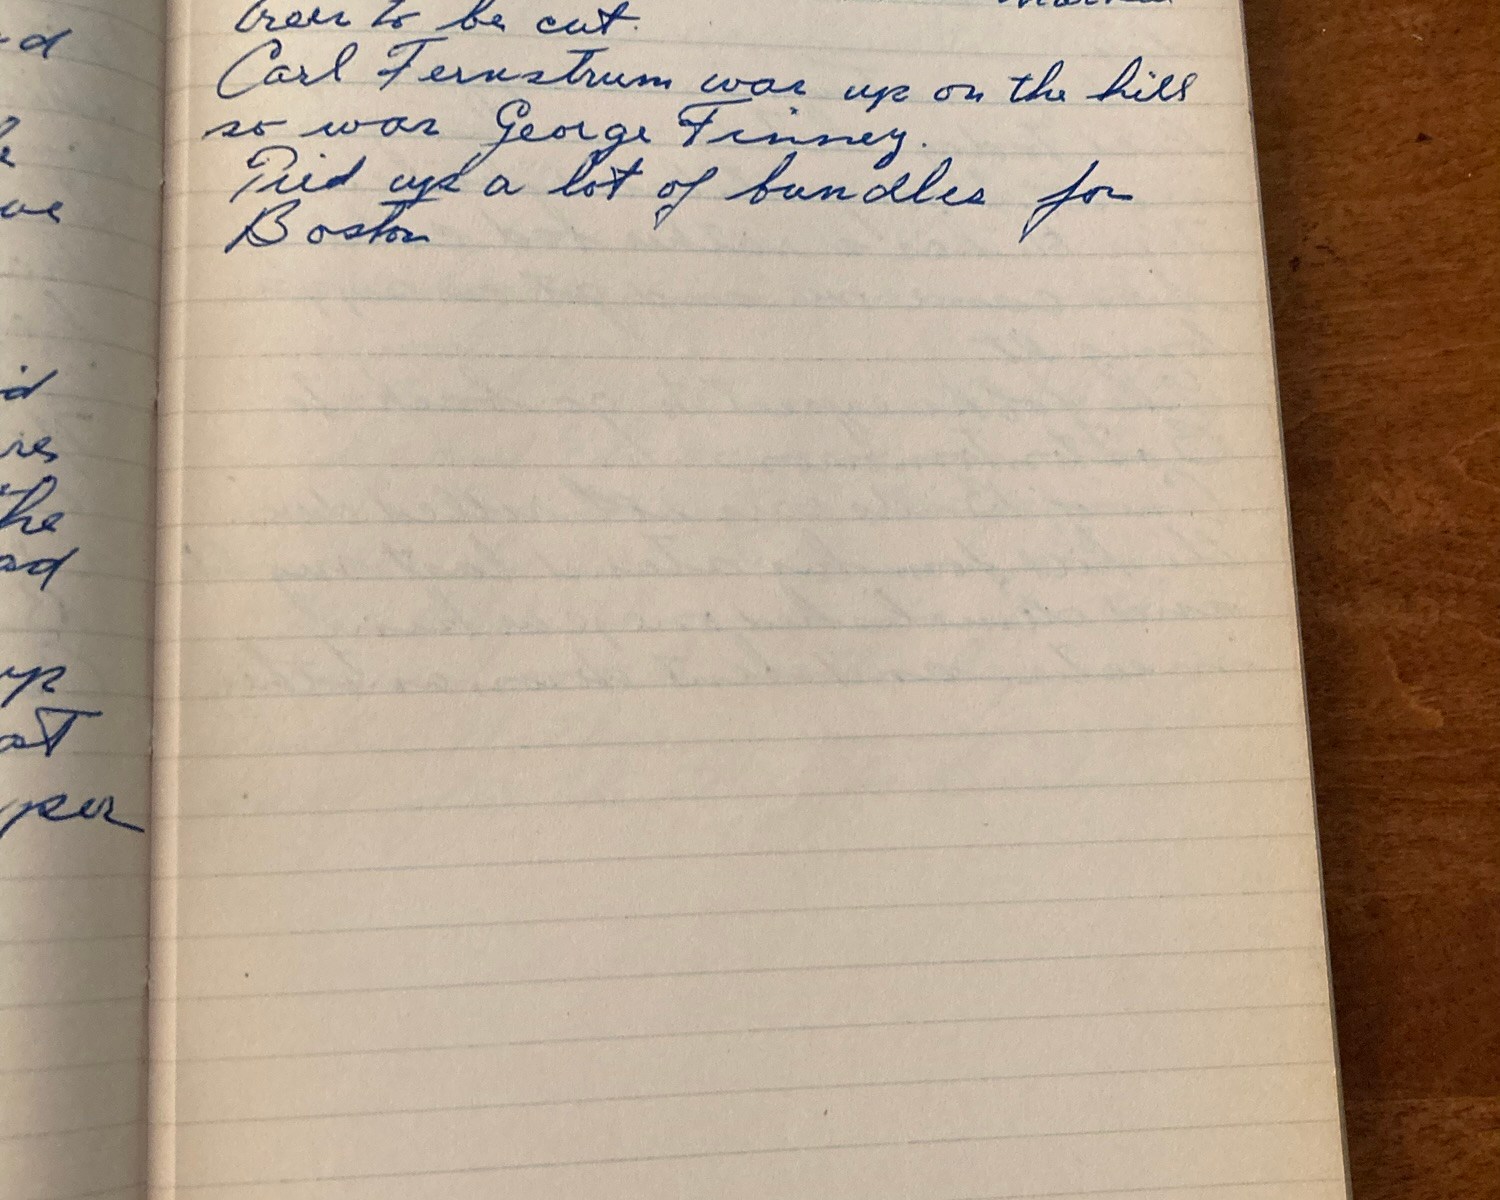 ed
ve
id
res
the
ad
up
at
per
trees to be cut.
Carl Fernstrum was up on the hill
so was George Finney.
Tied up a lot of bundles for
Boston